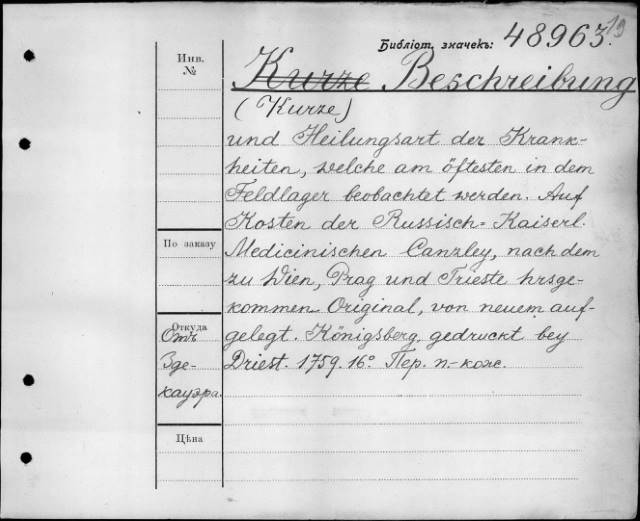 Библіот. значекъ: 48963. 19
Инв.
№
Kurze Beschreibung
(Kurze)
und Heilungsart der Krank-
heiten, welche am öftesten in dem
Feldlager beobachtet werden. Auf
Kosten der Russisch-Kaiserl.
По заказу
Medicinischen Canzley, nach dem
zu Wien, Prag und Trieste hrsge-
kommen Original, von neuem auf-
Откуда
Отъ
gelegt. Königsberg, gedruckt bey
Зде-
Driest. 1759. 16° Пер. п-кож.
кауэра.
Цѣна